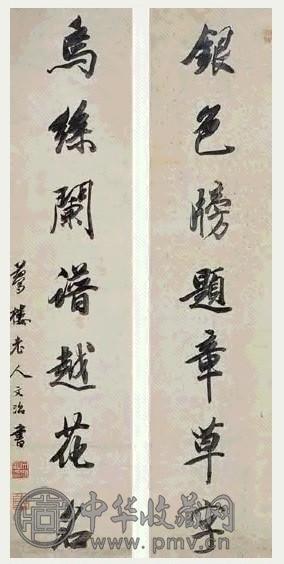 銀色牓題章草字
烏絲闌譜越花名
夢樓老人文治書
中华收藏网
www.pmv.cn